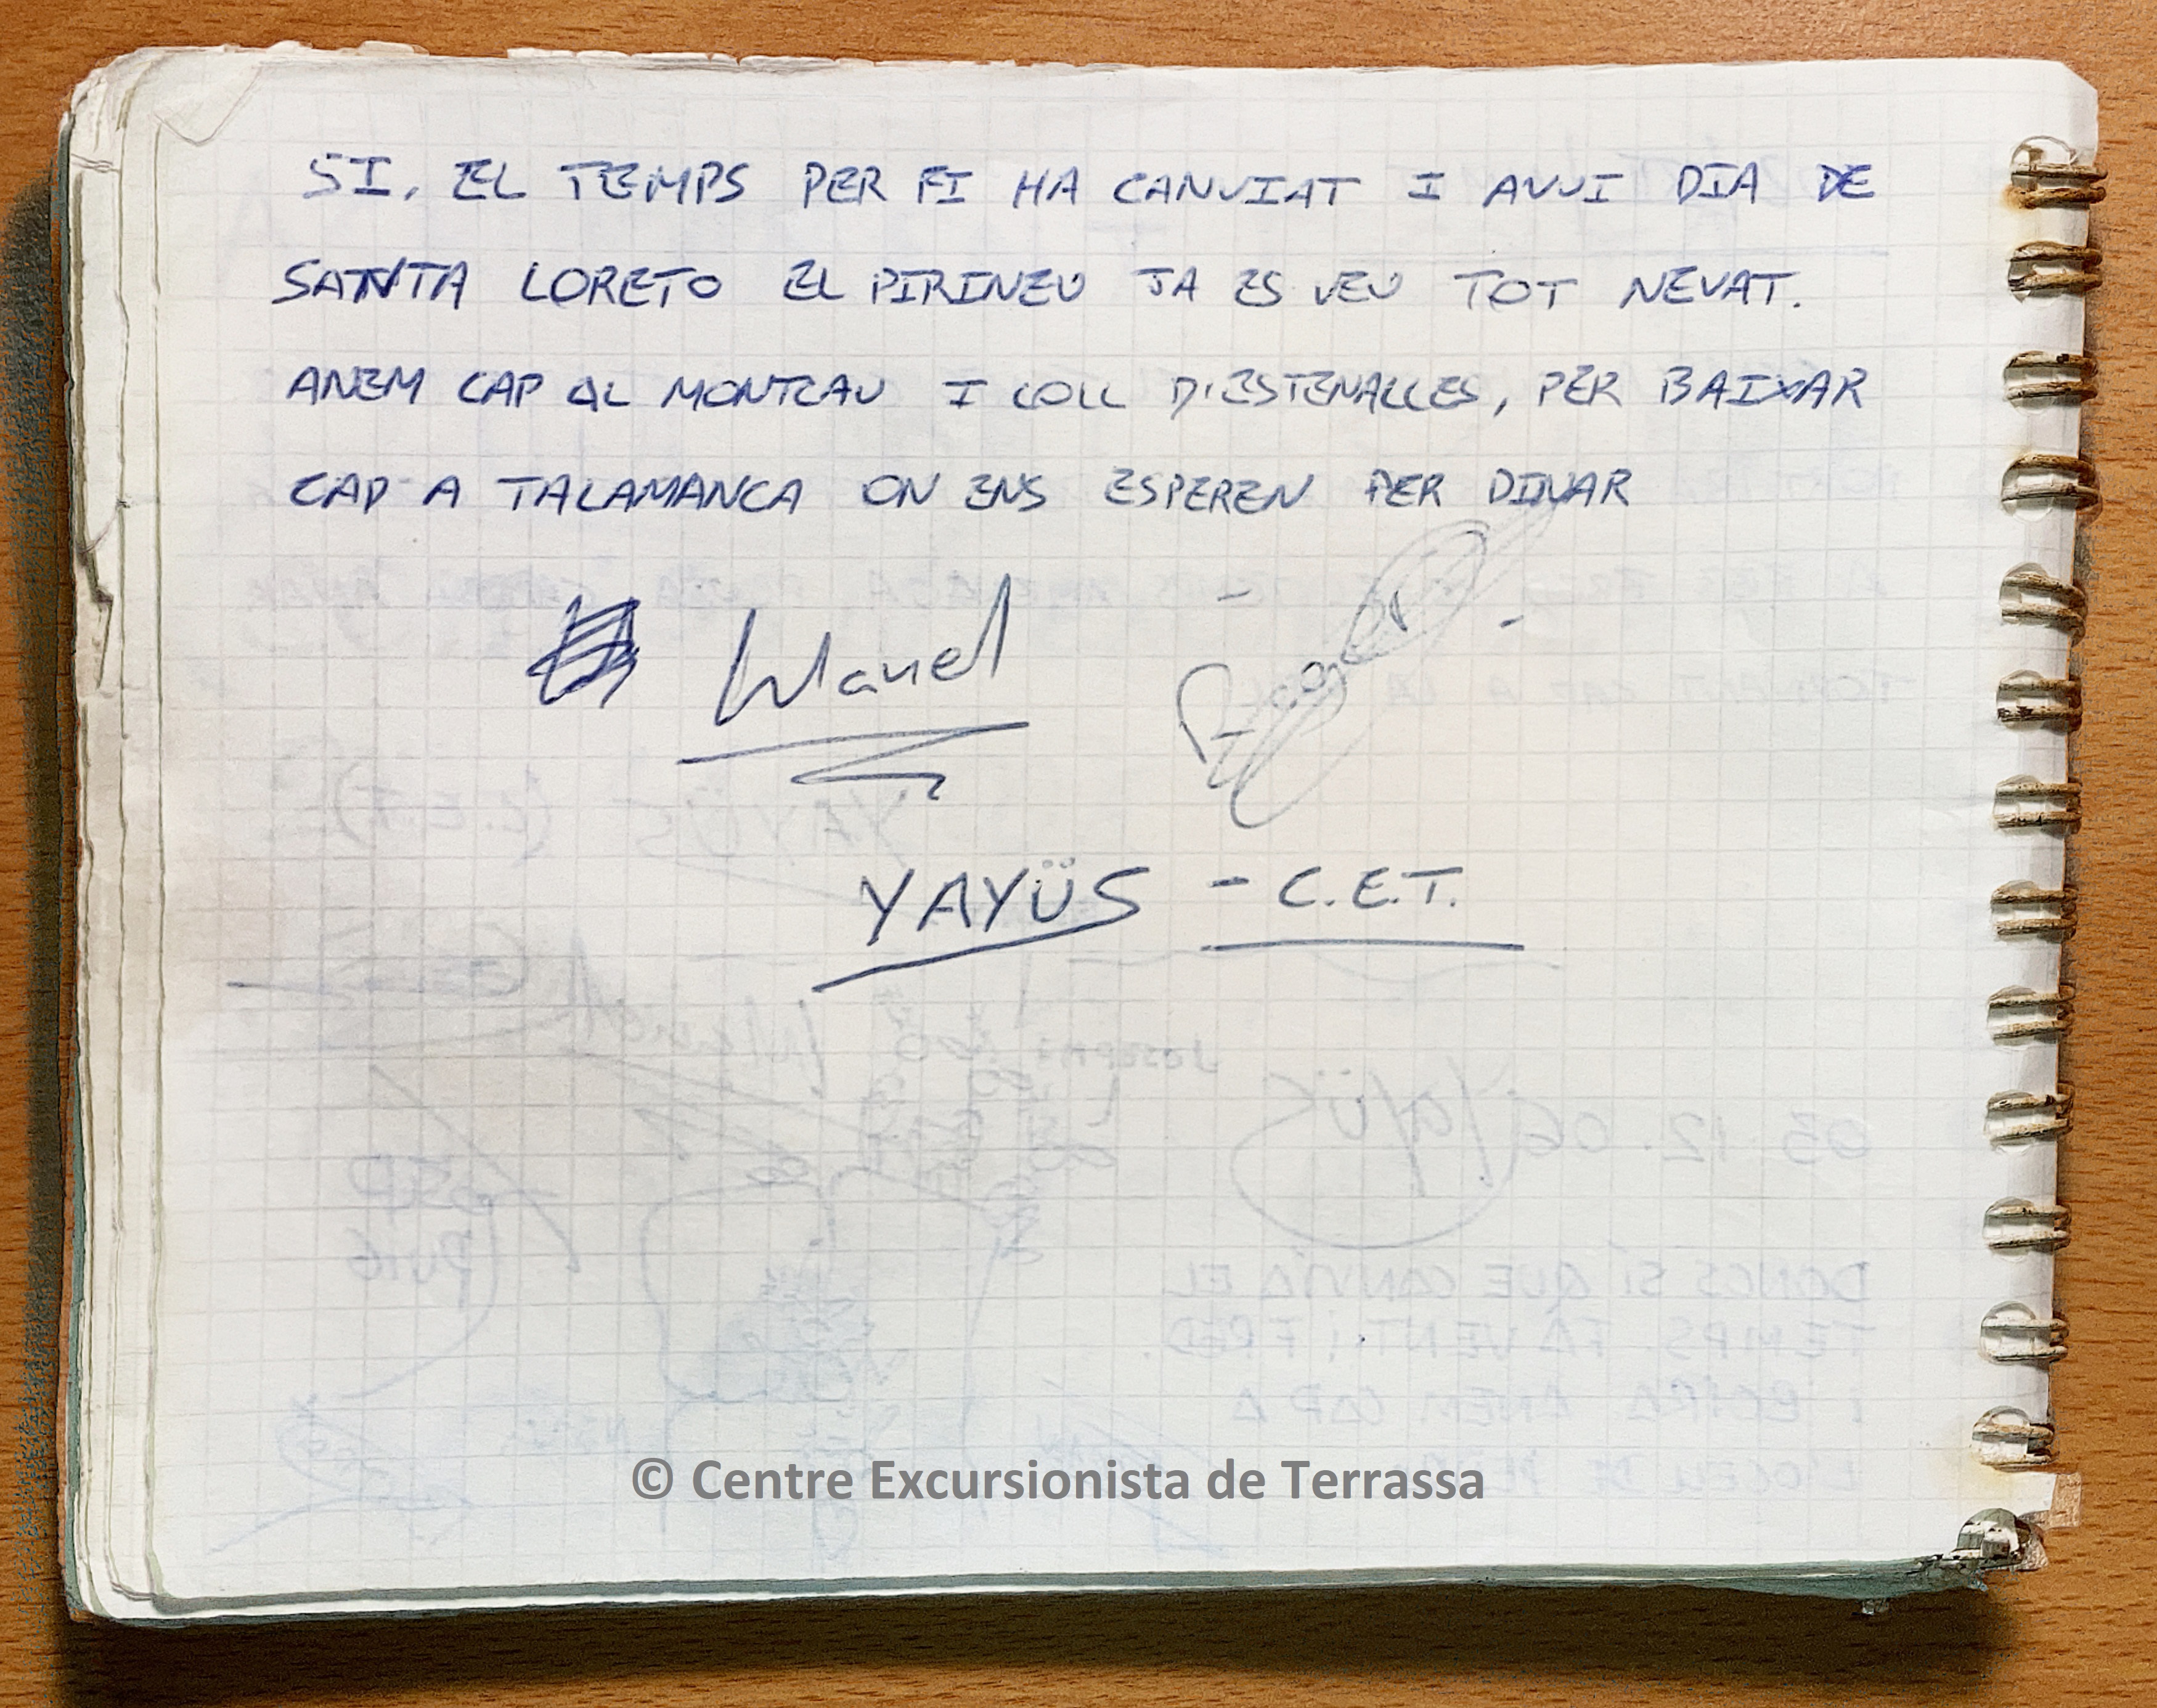 SI, EL TEMPS PER FI HA CANVIAT I AVUI DIA DE
SANTA LORETO EL PIRINEU JA ES VEU TOT NEVAT.
ANEM CAP AL MONTCAU I COLL D'ESTENALLES, PER BAIXAR
CAP A TALAMANCA ON ENS ESPEREN PER DINAR
Manel Roger
YAYÜS - C.E.T.
© Centre Excursionista de Terrassa